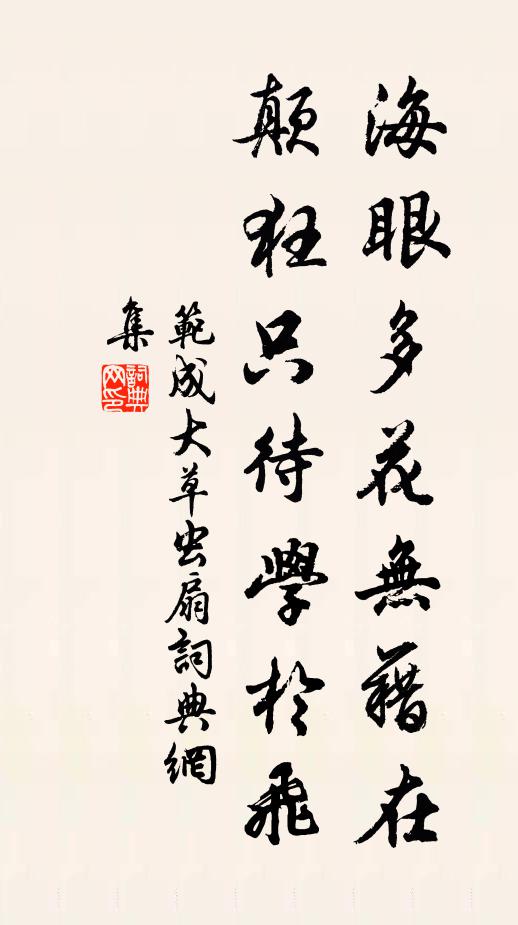 海眼多花無藉在
顛狂只待學於飛
範成大草虫扇詞典網
集
詞典網印